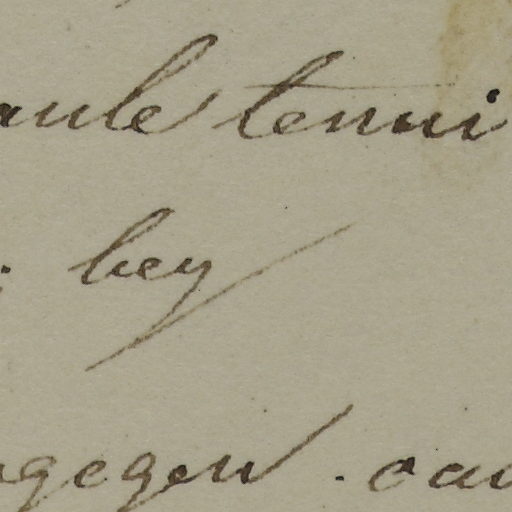 aule tenui
bey
gegen . cau